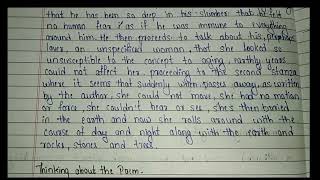 that he has him so deep in his slumber that he felt
no human fear & as if he was immune to everything
around him. He then proceeds to talk about his,
lover, an unspecified woman, that she looked so
unsusceptible to the concept to aging, earthly years
could not affect her, proceeding to the second stanza
where it seems that suddenly when passes away, as written
by the author. she could not move, she had no motion
or force, she couldn't hear or see, she's then buried
in the earth and now she rolls around with the
course of day and night along with the earth and
rocks, stones and trees.
Thinking about the Poem.